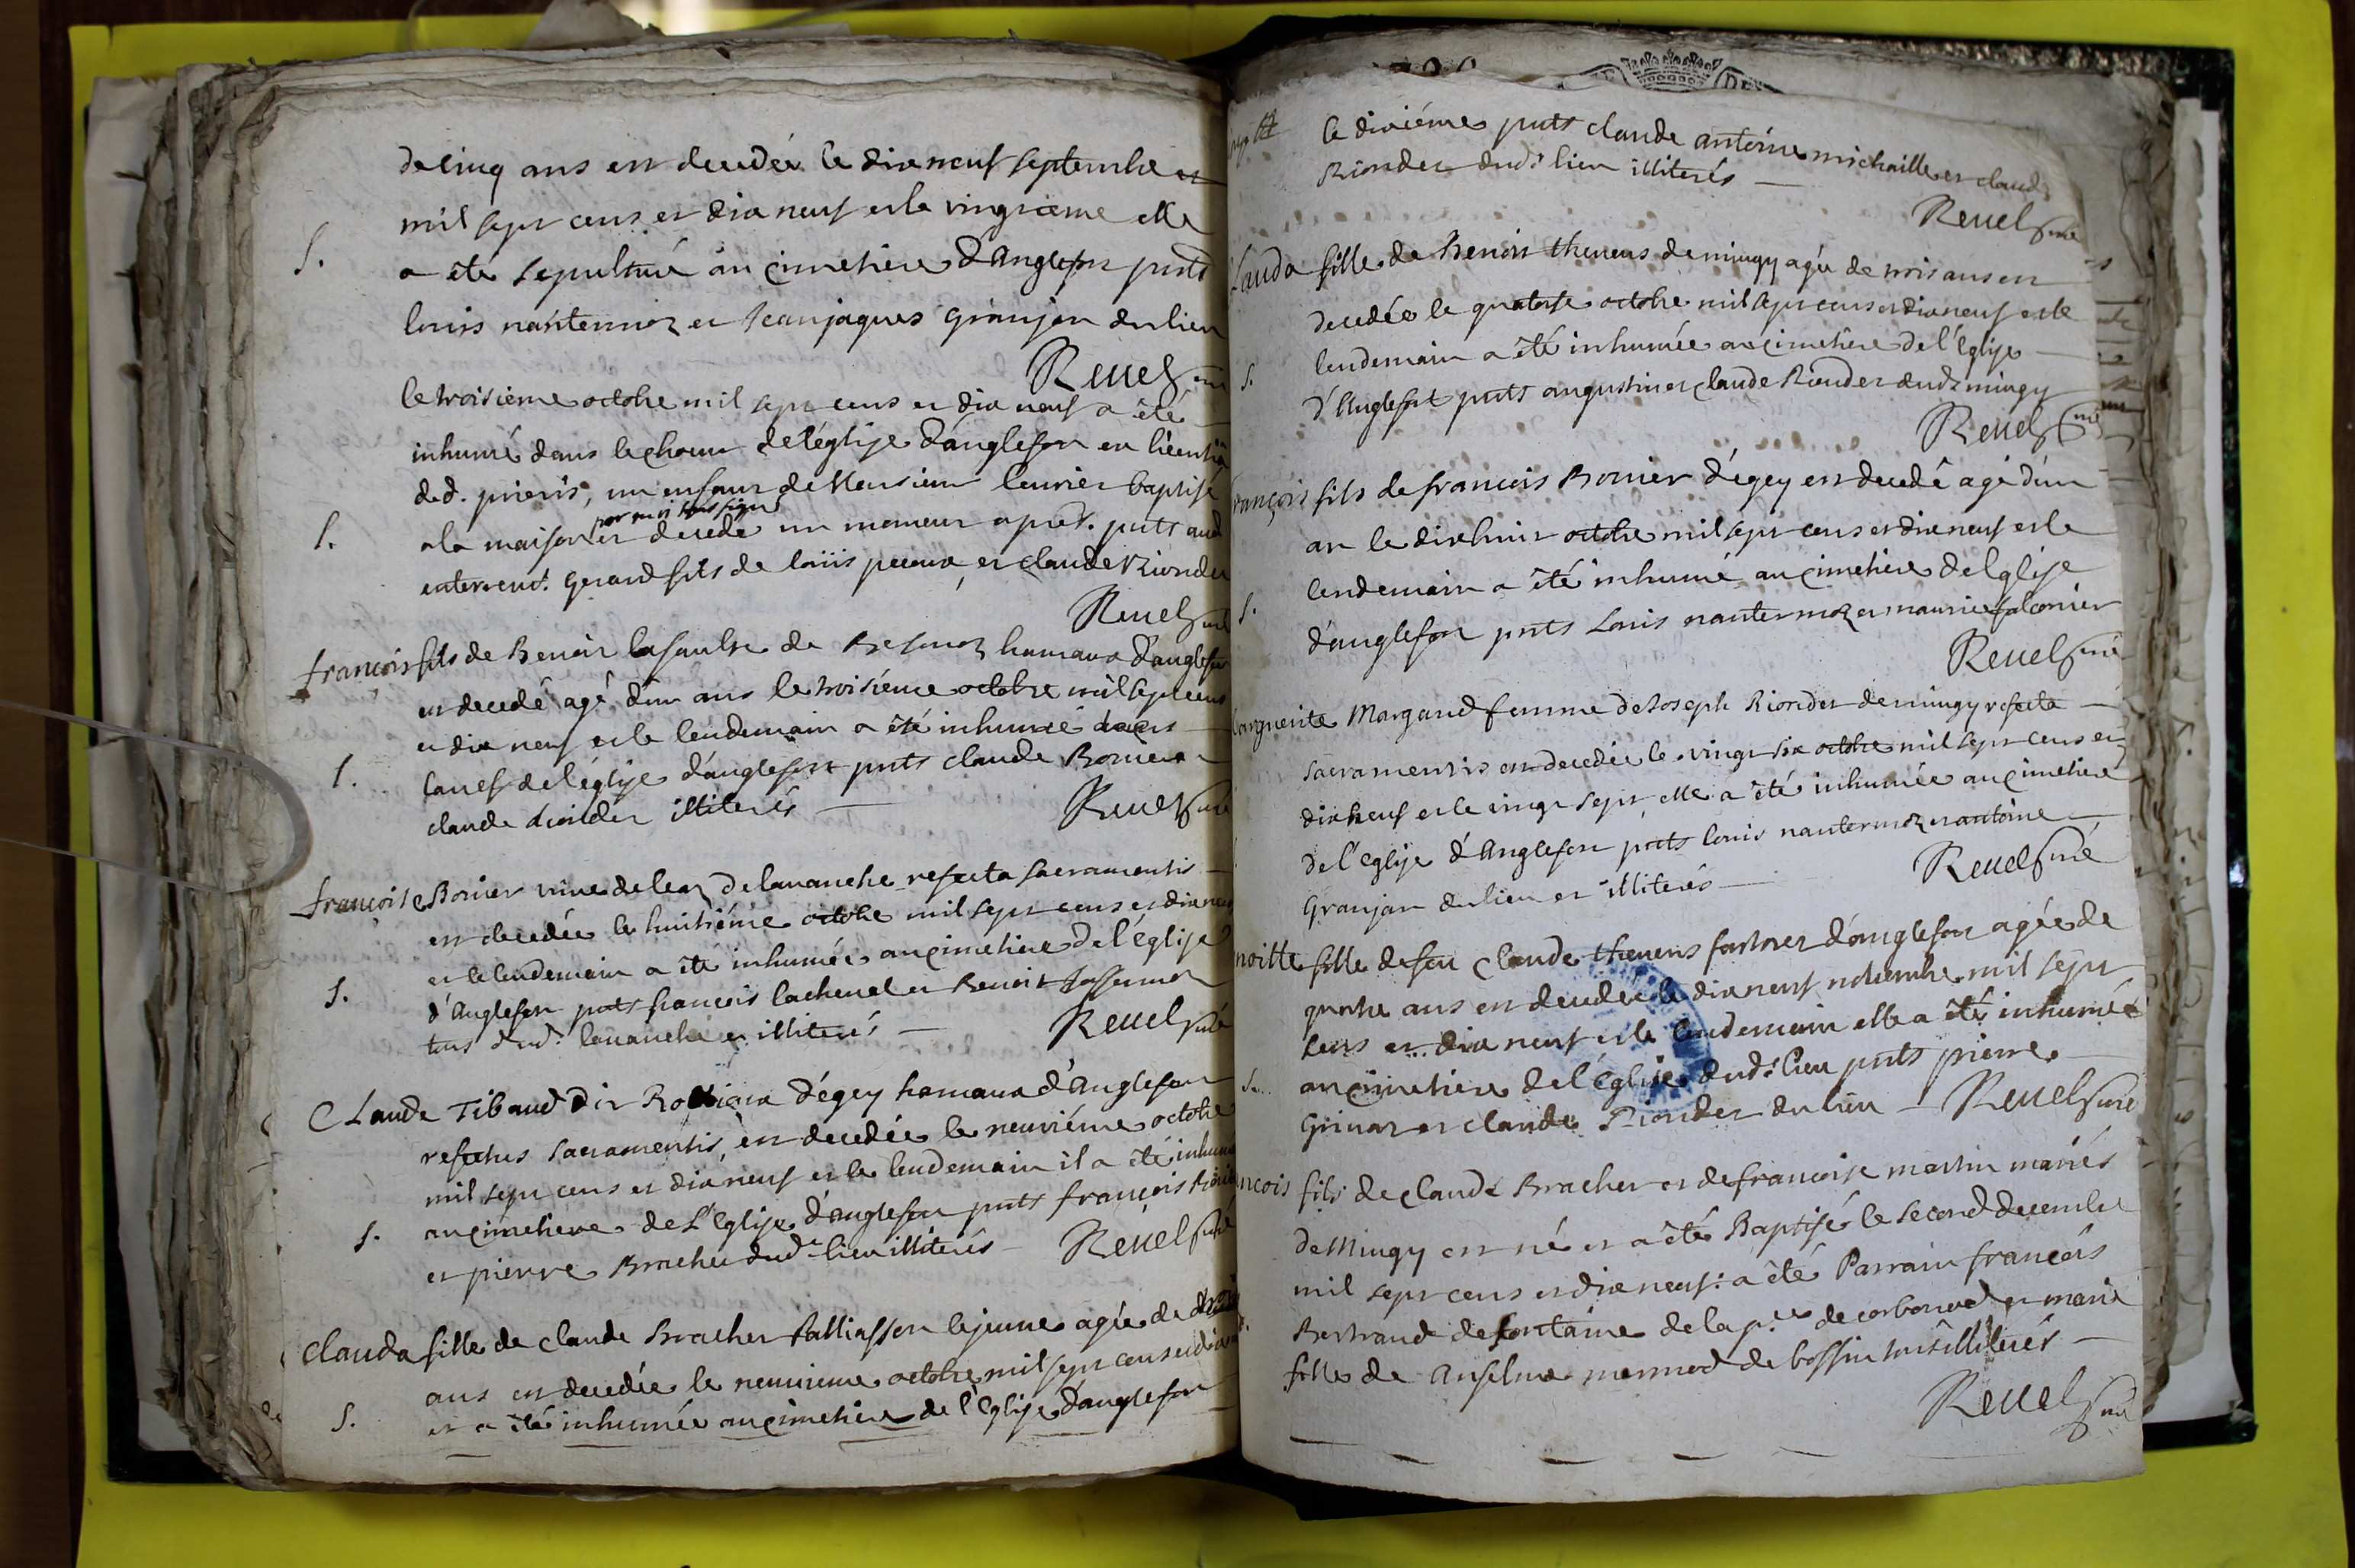 de cinq ans est decedée le dix neuf septembre
mil sept cens et dix neuf et le vingtieme elle
S.
a été sepulturé au cimetiere d'Anglefort pnts
louis nantermoz et Jean jaques Granjon du lieu
Reuel curé
le troisieme octobre mil sept cens et dix neuf a été
inhumé dans le choeur de l'église d'anglefort
d.d. prieris, un enfant de Monsieur baptisé
par moi soussigné
S.
a la maison et decedé un moment apres. pnts aud
enterremt. Gerard fils de loüis et claude Rionder
Reuel curé
françois fils de Benoit de hameaux d'anglefort
est decedé agé d'un ans le troisiéme octobre mil sept cens
et dix neuf et le lendemain a été inhumé dans
S.
la nef de l'église d'anglefort pnts claude Bornier
claude illiterés
Reuel curé
françoise Bornier de lavanche refecta sacramentis
est decedée le huitiéme octobre mil sept cens et dix neuf
et le lendemain a été inhumée au cimetiere de l'église
S.
d'Anglefort pnts françois lachenal et Benoit
tous dud. lavanche et illiterés
Reuel curé
Claude Tibaud dit d'égey hameaux d'Anglefort
refectus sacramentis, est decedée le neuviéme octobre
mil sept cens et dix neuf et le lendemain il a été inhumé
S.
au cimetiere de L'Eglise d'anglefort pnts françois
et pierre Bracher dud. lieu illiterés
Reuel curé
Clauda fille de Claude Bracher le jeune agée de
ans est decedée le neuvieme octobre mil sept cens et dix
S.
et a été inhumée au cimetiere de l'Eglise d'anglefort
le dixiéme pnts claude antoine michaille et claude
Rionder dud. lieu illiterés
Reuel curé
Clauda fille de Benoit thevens de mingy agée de trois ans est
decedée le quatorse octobre mil sept cens et dix neuf et le
lendemain a été inhumée au cimetiere de l'Eglise
S.
d'Anglefort pnts augustin et claude Rionder dud. mingy
Reuel curé
françois fils de françois Bornier d'égey est decedé agé d'un
an le dix huit octobre mil sept cens et dix neuf et le
lendemain a été inhumé au cimetiere de l'Eglise
S.
d'anglefort pnts Louis nantermoz et maurice falconier
Reuel curé
Marguerite Margaud femme de Joseph Rionder de mingy refecta
sacramentis est decedée le vingt six octobre mil sept cens et
dix neuf et le vingt sept elle a été inhumée au cimetiere
de l'eglise d'Anglefort pnts louis nantermoz et antoine
Granjon du lieu et illiterés
Reuel curé
fille de feu Claude thevens d'anglefort agée de
quatre ans est decedée le dix neuf novembre mil sept
cens et dix neuf et le lendemain elle a été inhumée
S.
au cimetiere de l'Eglise dud. lieu pnts pierre
et claude Rionder du lieu
Reuel curé
françois fils de Claude Bracher et de françoise martin mariés
de Mingy est né et a été Baptisé le second decembre
mil sept cens et dix neuf: a été Parrain françois
Bertrand de fontaine de la psse de corbonod et marie
fille de Anselme mermod de bossin tous illiterés
Reuel curé